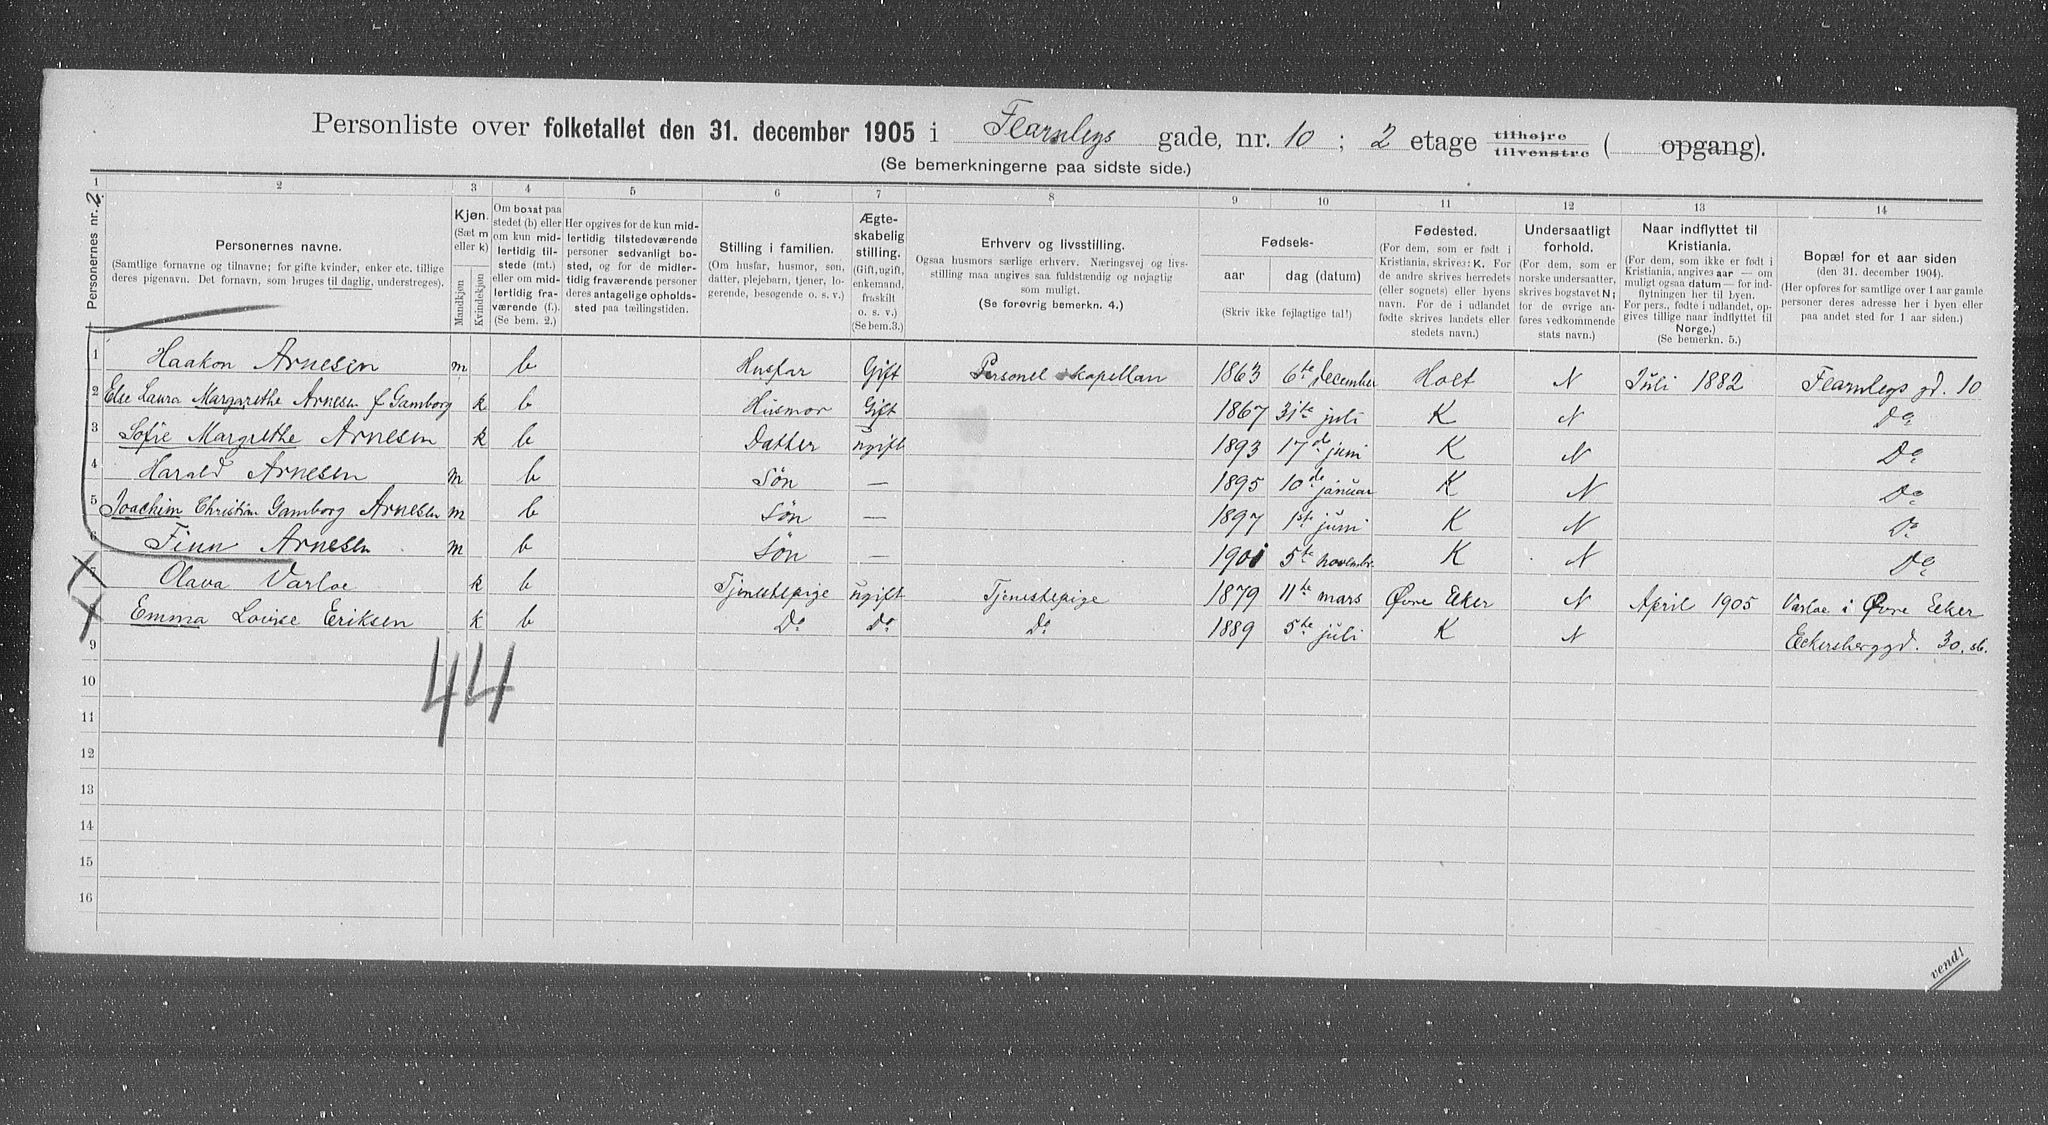 Personliste over folketallet den 31. december 1905 i Fearnleys gade, nr. 10 ; 2 etage tilhøjre tilvenstre ( opgang).
(Se bemerkningerne paa sidste side.)
1 2 3 4 5 6 7 8 9 10 11 12 13 14
Personernes nr. 2.
Personernes navne.
(Samtlige fornavne og tilnavne; for gifte kvinder, enker etc. tillige
deres pigenavn. Det fornavn, som bruges til daglig, understreges).
Kjøn.
(Sæt m
eller k)
Mandkjøn
Kvindekjøn
Om bosat paa
stedet (b) eller
om kun mid-
lertidig til-
stede (mt.)
eller om mid-
lertidig fra-
værende (f.).
(Se bem. 2.)
Her opgives for de kun mid-
lertidig tilstedeværende
personer sedvanligt bo-
sted, og for de midler-
tidig fraværende personer
deres antagelige opholds-
sted paa tællingstiden.
Stilling i familien.
(Om husfar, husmor, søn,
datter, plejebarn, tjener, lo-
gerende, besøgende o. s. v.)
Ægte-
skabelig
stilling.
(Gift, ugift,
enkemand,
fraskilt
o. s. v.)
(Se bem.3.)
Erhverv og livsstilling.
Ogsaa husmors særlige erhverv. Næringsvej og livs-
stilling maa angives saa fuldstændig og nøjagtig
som muligt.
(Se forøvrig bemerkn. 4.)
Fødsels-
aar
dag (datum)
(Skriv ikke fejlagtige tal!)
Fødested.
(For dem, som er født i
Kristiania, skrives: K. For
de andre skrives herredets
(eller sognets) eller byens
navn. For de i udlandet
fødte skrives landets eller
stedets navn.)
Undersaatligt
forhold.
(For dem, som er
norske undersaatter,
skrives bogstavet N;
for de øvrige an-
føres vedkommende
stats navn.)
Naar indflyttet til
Kristiania.
(For dem, som ikke er født i
Kristiania, angives aar — om
muligt ogsaa datum — for ind-
flytningen her til byen.
For pers., fødte i udlandet, op-
gives tillige naar indflyttet til
Norge.)
(Se bemerkn. 5.)
Bopæl for et aar siden
(den 31. december 1904).
(Her opføres for samtlige over 1 aar gamle
personer deres adresse her i byen eller
paa andet sted for 1 aar siden.)
1 Haakon Arnesen m b Husfar Gift Personel kapellan 1863 6te december Holt N Juli 1882 Fearnleys gd. 10
2 Else Laura Margarethe Arnesen f Gamborg k b Husmor Gift 1867 31te juli K N Do
3 Sofie Margrethe Arnesen k b Datter ugift 1893 17de juni K N Do
4 Harald Arnesen m b Søn — 1895 10de januar K N Do
5 Joachim Christian Gamborg Arnesen m b Søn — 1897 1ste juni K N Do
6 Finn Arnesen m b Søn — 1901 5te novembr. K N Do
7 Olava Varloe k b Tjenestepige ugift Tjenestepige 1879 11te mars Øvre Eker N April 1905 Varloe i Øvre Eeker
8 Emma Louise Eriksen k b Do Do Do 1889 5te juli K N Eckersberggd. 30, st.
9
10
44
11
12
13
14
15
16
vend!